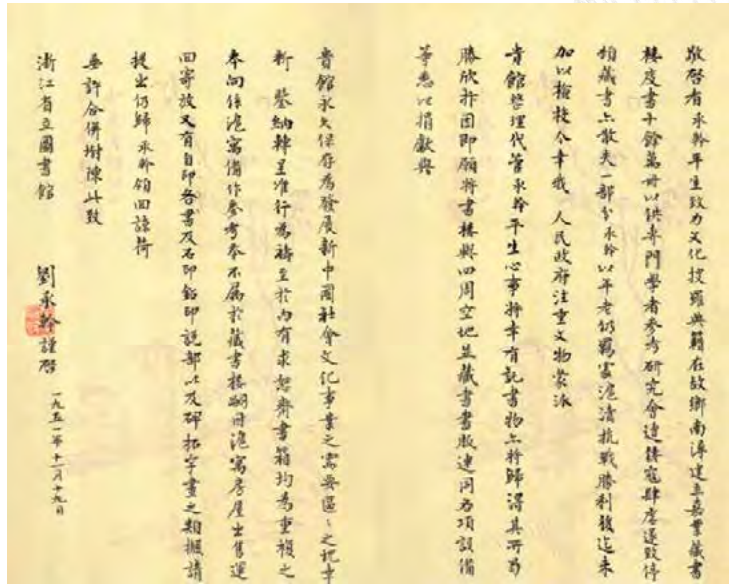 敬啓者承幹平生致力文化搜羅典籍在故鄉南潯建立嘉業藏書
樓庋書十餘萬冊以供專門學者參考研究會遭倭寇肆虐遂致停
頓藏書亦散失一部分承幹以年老仍羈寓滬瀆抗戰勝利後迄未
加以檢校今幸我 人民政府注重文物蒙派
貴館整理代管承幹平生心事將幸有託書物亦將歸得其所曷
勝欣抃因即願將書樓與四周空地並藏書書版連同各項設備
等悉以捐獻與
貴館永久保存為發展新中國社會文化事業之需要區〻之忱幸
祈 鑒納轉呈准行為禱至於內有求恕齋書箱均為重複之
本向係滬寓備作參考本不屬於藏書樓嗣因滬寓房屋出售運
回寄放又有自印各書及石印鉛印說部以及碑拓字畫之類擬請
提出仍歸承幹領回諒荷
垂許合併坿陳此致
浙江省立圖書館
劉承幹謹啓
一九五一年十一月十九日